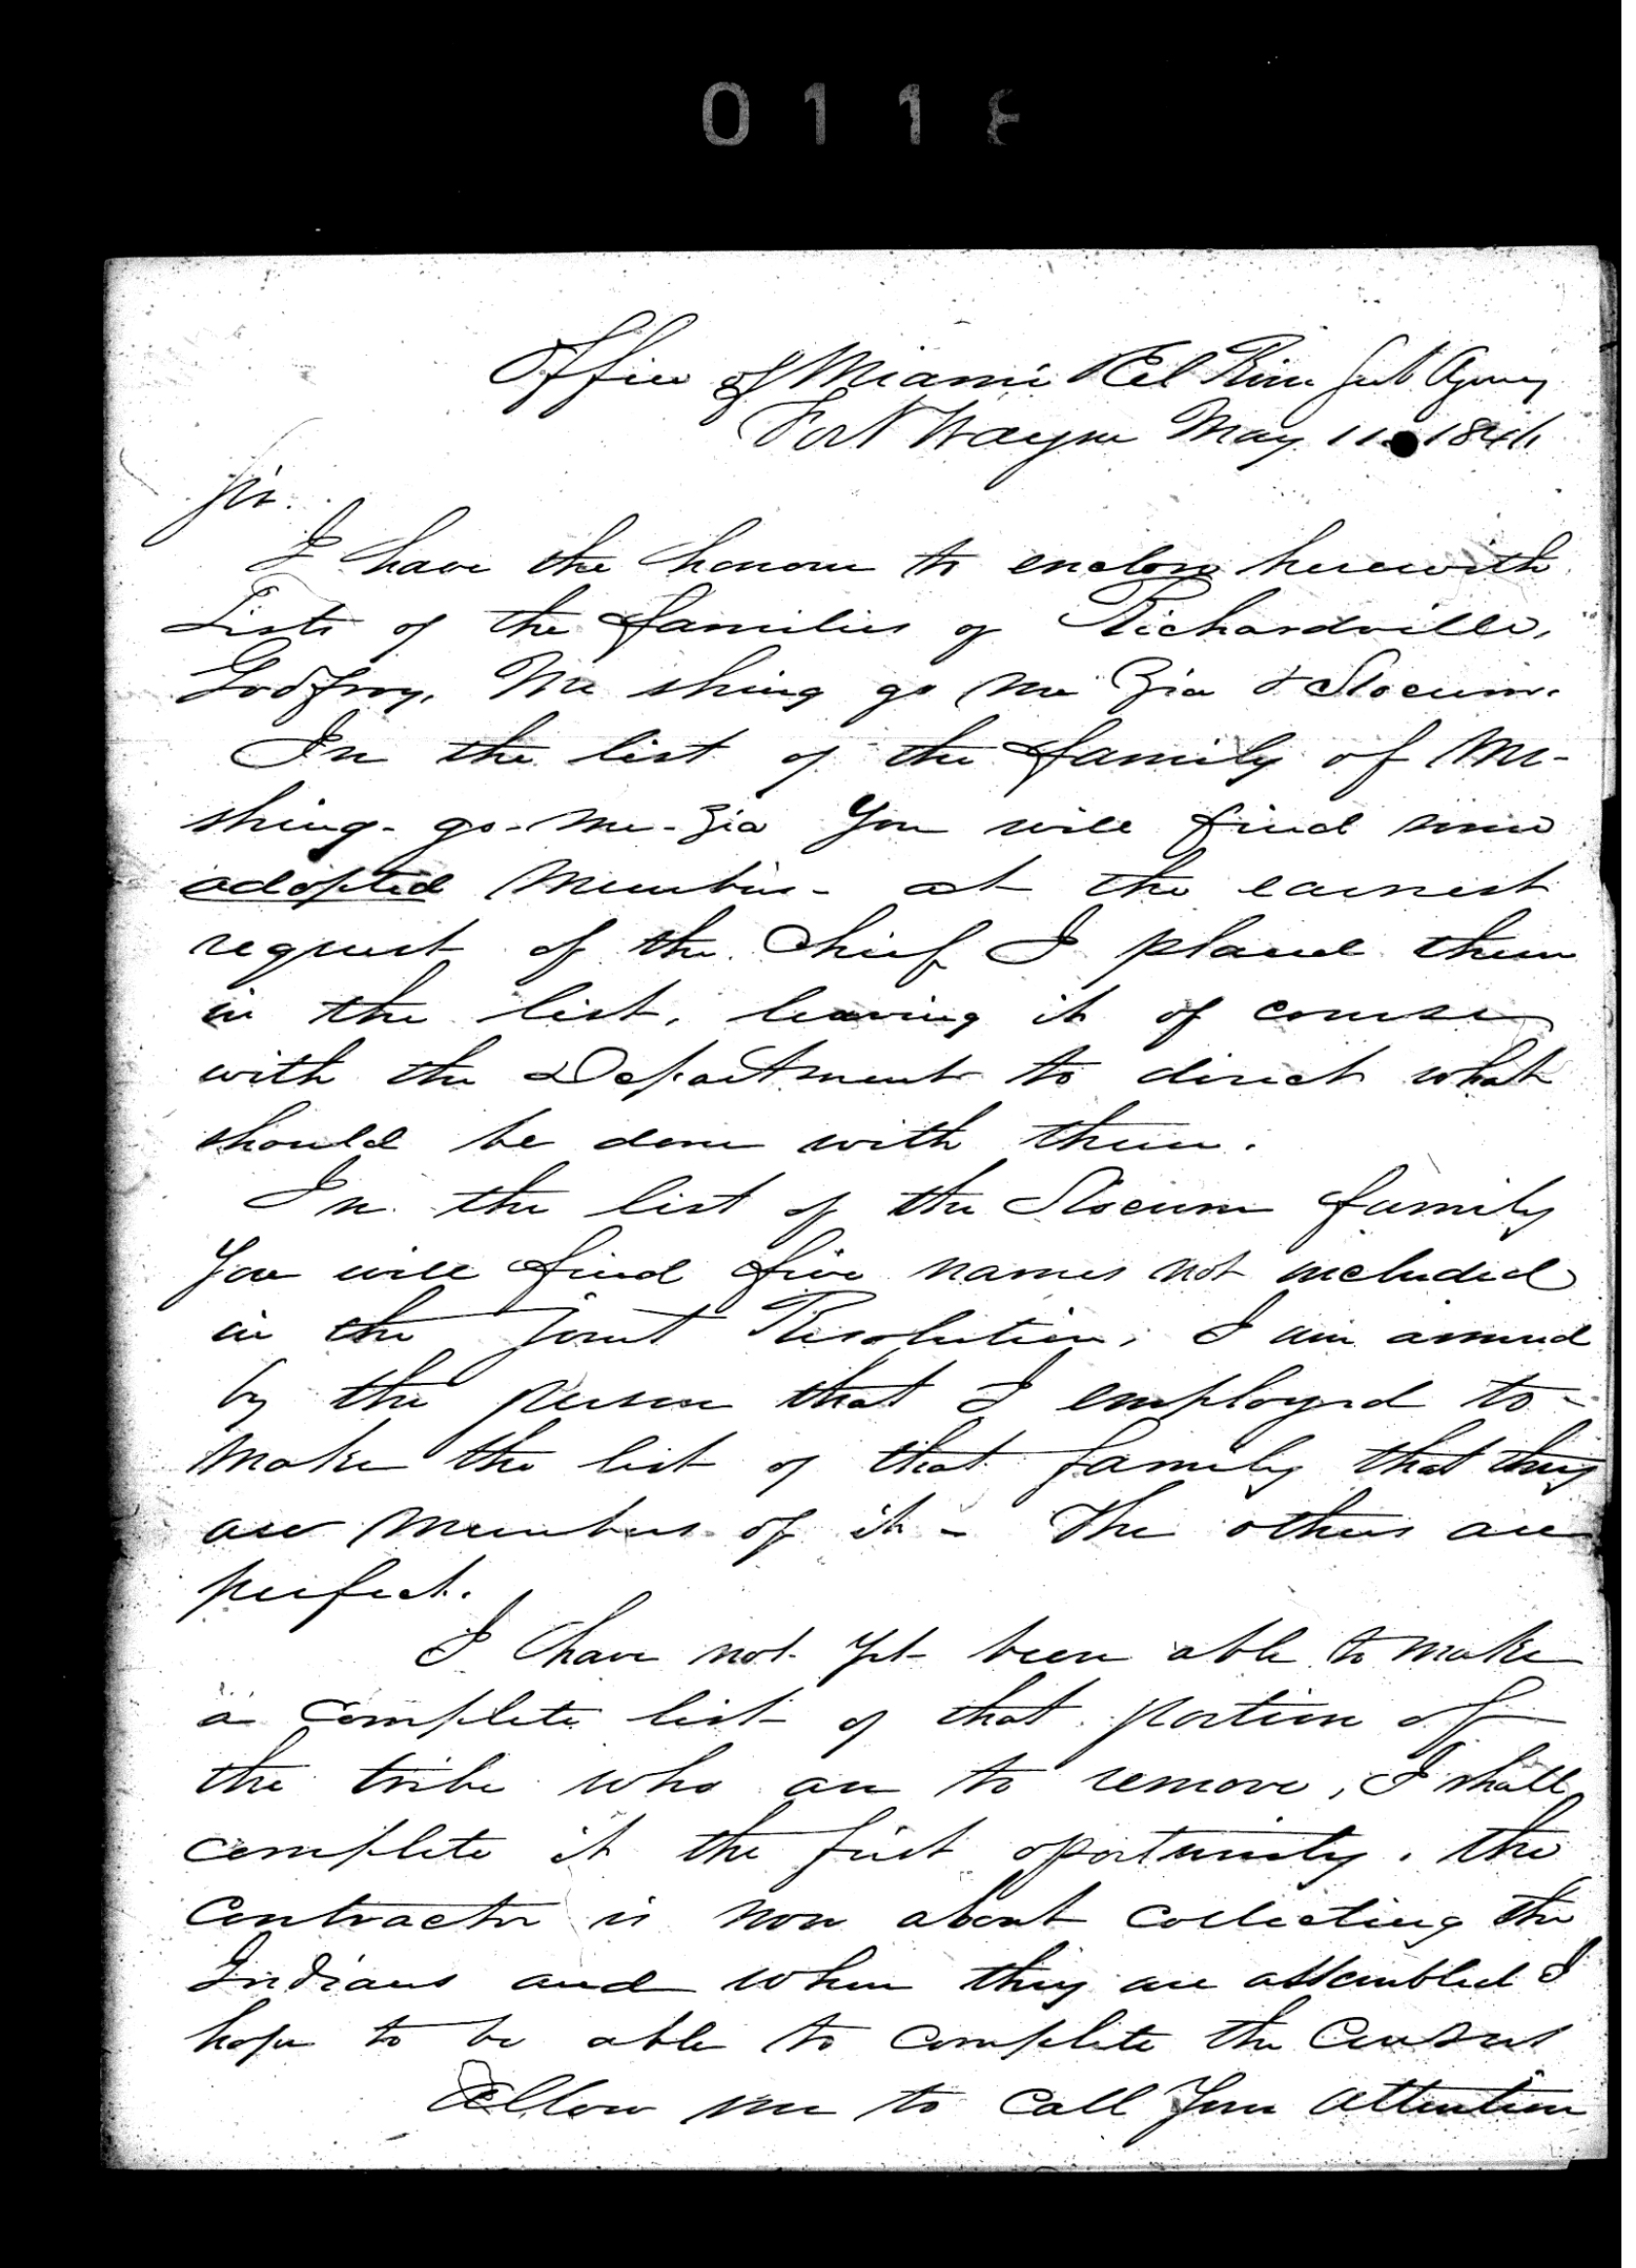 0118
Office of Miami & Eel River Sub Agency
Fort Wayne May 11. 1846
Sir.
I have the honour to enclose herewith
Lists of the families of Richardville,
Godfroy, Me shing go me Zia & Slocum.
In the list of the family of Me-
shing-go-me-Zia You will find some
adopted Members - at the earnest
request of the Chief I placed them
in the list, leaving it of course
with the Department to direct what
should be done with them.
In the list of the Slocum family
You will find five names not included
in the Joint Resolution; I am assured
by the person that I employed to
make the list of that family that they
are members of it - The others are
perfect.
I have not yet been able to make
a complete list of that portion of
the tribe who are to remove, I shall
complete it the first oportunity. the
Contractor is now about Collecting the
Indians and when they are assembled I
hope to be able to complete the Census
Allow me to Call Your attention